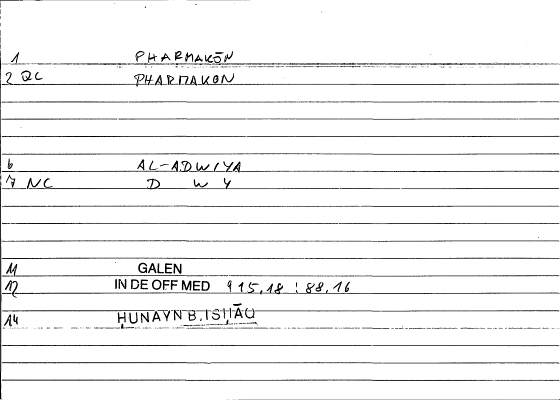 1 PHARMAKŌN
2 QC PHARMAKON
6 AL-ADWIYA
7 NC D W Y
11 GALEN
12 IN DE OFF MED 915,18 : 88,16
14 ḤUNAYN B. ISḤĀQ